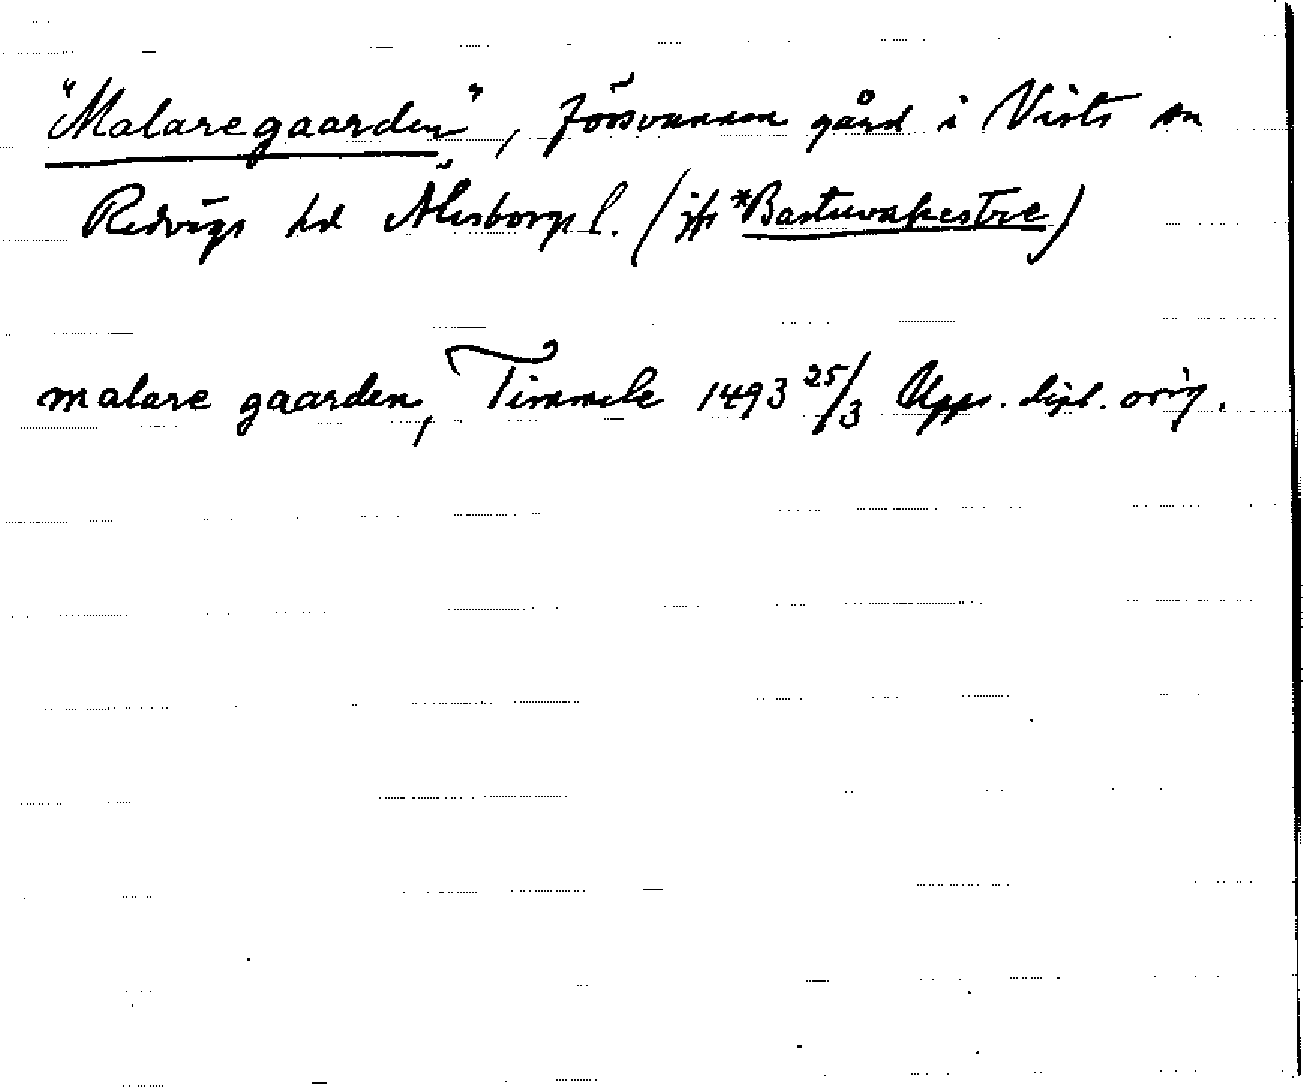 "Malaregaarden", försvunnen gård i Vists sn
Redvägs hd Älvsborgs l. (jfr *Bastuvakestre)
malare gaarden, Timmele 1493 25/3 Upps. dipl. orig.